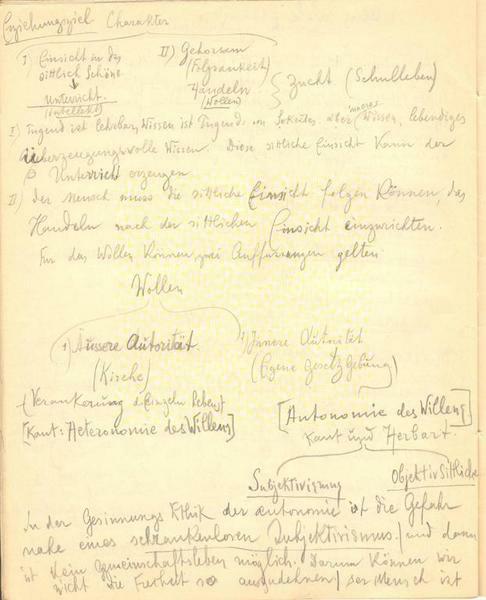 Erziehungsziel Charakter
I) Einsicht in das sittlich Schöne
Unterricht.
(Intellekt)
II) Gehorsam
(Folgsamkeit)
Handeln
(Wollen)
Zucht (Schulleben)
I) Tugend ist lehrbar, Wissen ist Tugend, Sokrates, aber Wissen, lebendiges
überzeugungsvolle Wissen. Diese sittliche Einsicht kann der
Unterricht erzeugen
II) Der Mensch muss die sittliche Einsicht folgen können, das
Handeln nach der sittlichen Einsicht einzurichten.
Für das Wollen können zwei Auffassungen gelten
Wollen
1) Äussere Autorität.
(Kirche)
(Verankerung d. Einzeln
[Kant: Heteronomie des Willens]
Innere Autorität
(Eigene Gesetzgebung)
[Autonomie des Willens]
Kant und Herbart.
Subjektivismus
Objektiv Sittliche
In der Gesinnungs Ethik der autonomie ist die Gefahr
nahe eines schrankenlosen Subjektivismus / und dann
ist kein Gemeinschaftsleben möglich. Darum können wir
nicht die Freiheit so auszudehnen / der Mensch ist